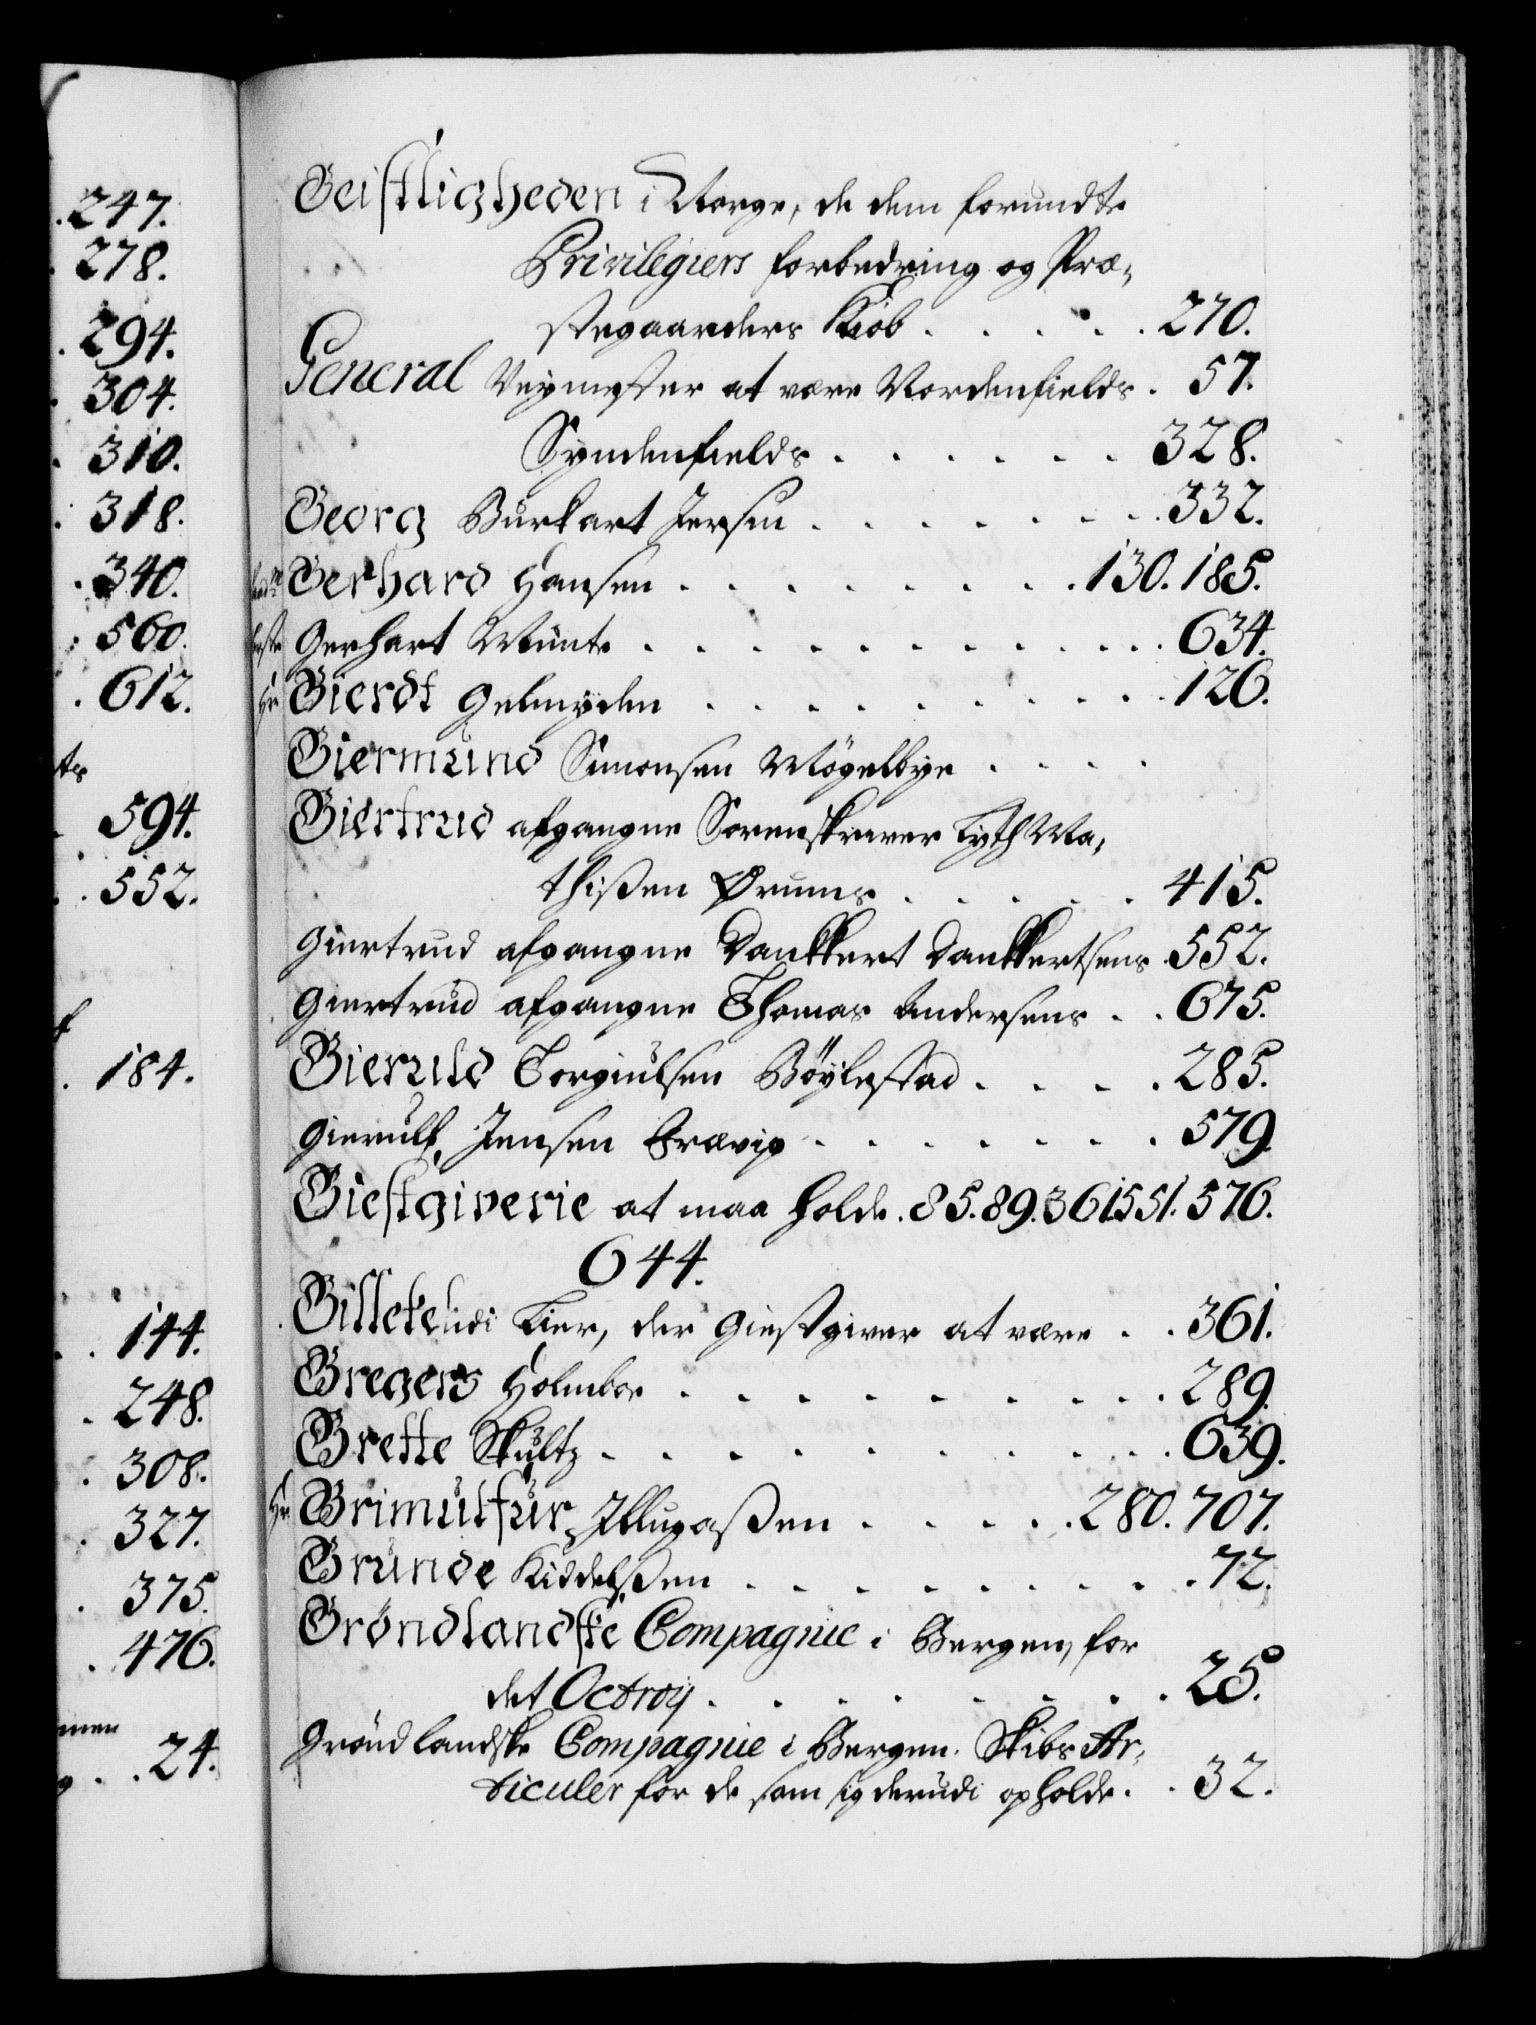 247.
278.
294.
304.
310.
318.
340.
560.
612.
ts
594.
552.
f
184.
144.
248.
308.
327.
375.
476.
men
g . . 24.
Geistligheden i Norge, de dem forundte
Privilegiers forbedring og Præ-
stegaarders Kiøb . . . . . 270.
General Veymester at være Nordenfields . 57.
Syndenfields . . . . . . 328.
Georg Burkart Jersin . . . . . . . 332.
Gerhard Hansen . . . . . . . 130. 185.
Gerhart Munte . . . . . . . . . 634.
Hr Gierdt Gelmÿden . . . . . . . . 126.
Giermund Simonsen Møgelbye . . . .
Giertrud afgangne Sorenskriver Lyth Ma-
thißen Ørums . . . . . 415.
Giertrud afgangne Dankkert Dankkertsens . 552.
Giertrud afgangne Thomas Andersens . . 675.
Gieruld Torgiulsen Bøÿlestad . . . . 285.
Gierulf Jensen Trævig . . . . . . . 579.
Giestgiverie at maa holde . 85. 89. 361 551. 576.
644.
Gilleke udi Lier, der Giestgiver at være . . 361.
Gregers Holmboe . . . . . . . . 289.
Grette Skultz . . . . . . . . . 639.
Hr Grimulfur Illugaßen . . . . . 280. 707.
Grunde Kiddelßen . . . . . . . . 72.
Grøndlandske Compagnie i Bergen, for
det Octroy . . . . . . . . 25.
Grøndlandske Compagnie i Bergen. Skibs Ar-
ticuler for de som sig derudi opholde . . 32.